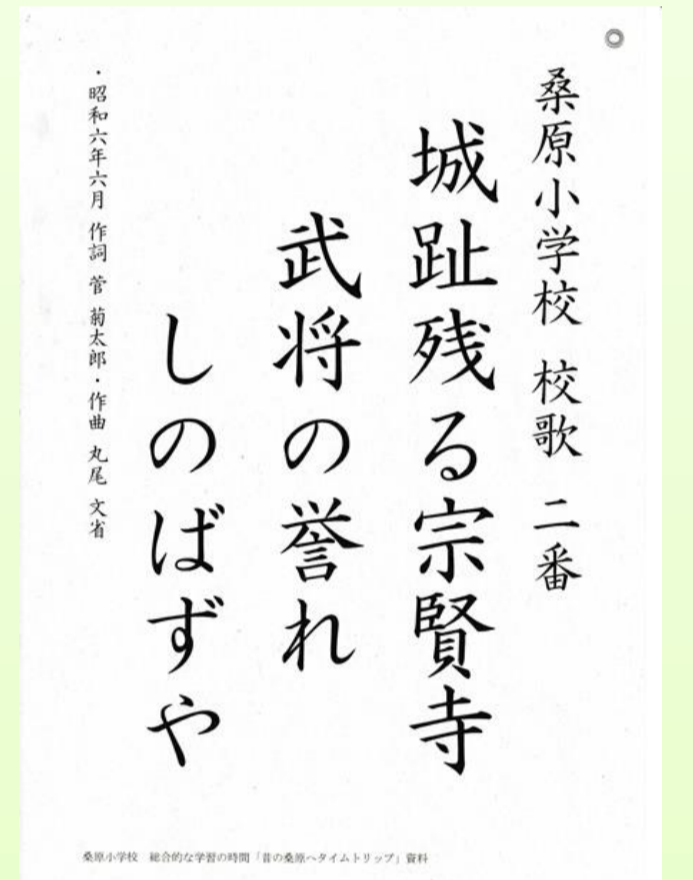 桑原小学校 校歌 二番
城趾残る宗賢寺
武将の誉れ
しのばずや
・昭和六年六月 作詞 菅 菊太郎・作曲 丸尾 文省
桑原小学校 総合的な学習の時間「昔の桑原へタイムトリップ」資料